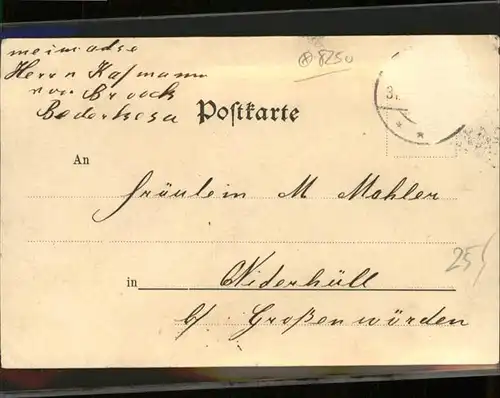 meine adse
Herrn Kasmann
von Broock
Bederkesa
Postkarte
8250
31.
An
Fräulein M Mahler
25
in Niderhüll
b/ Großenwörden